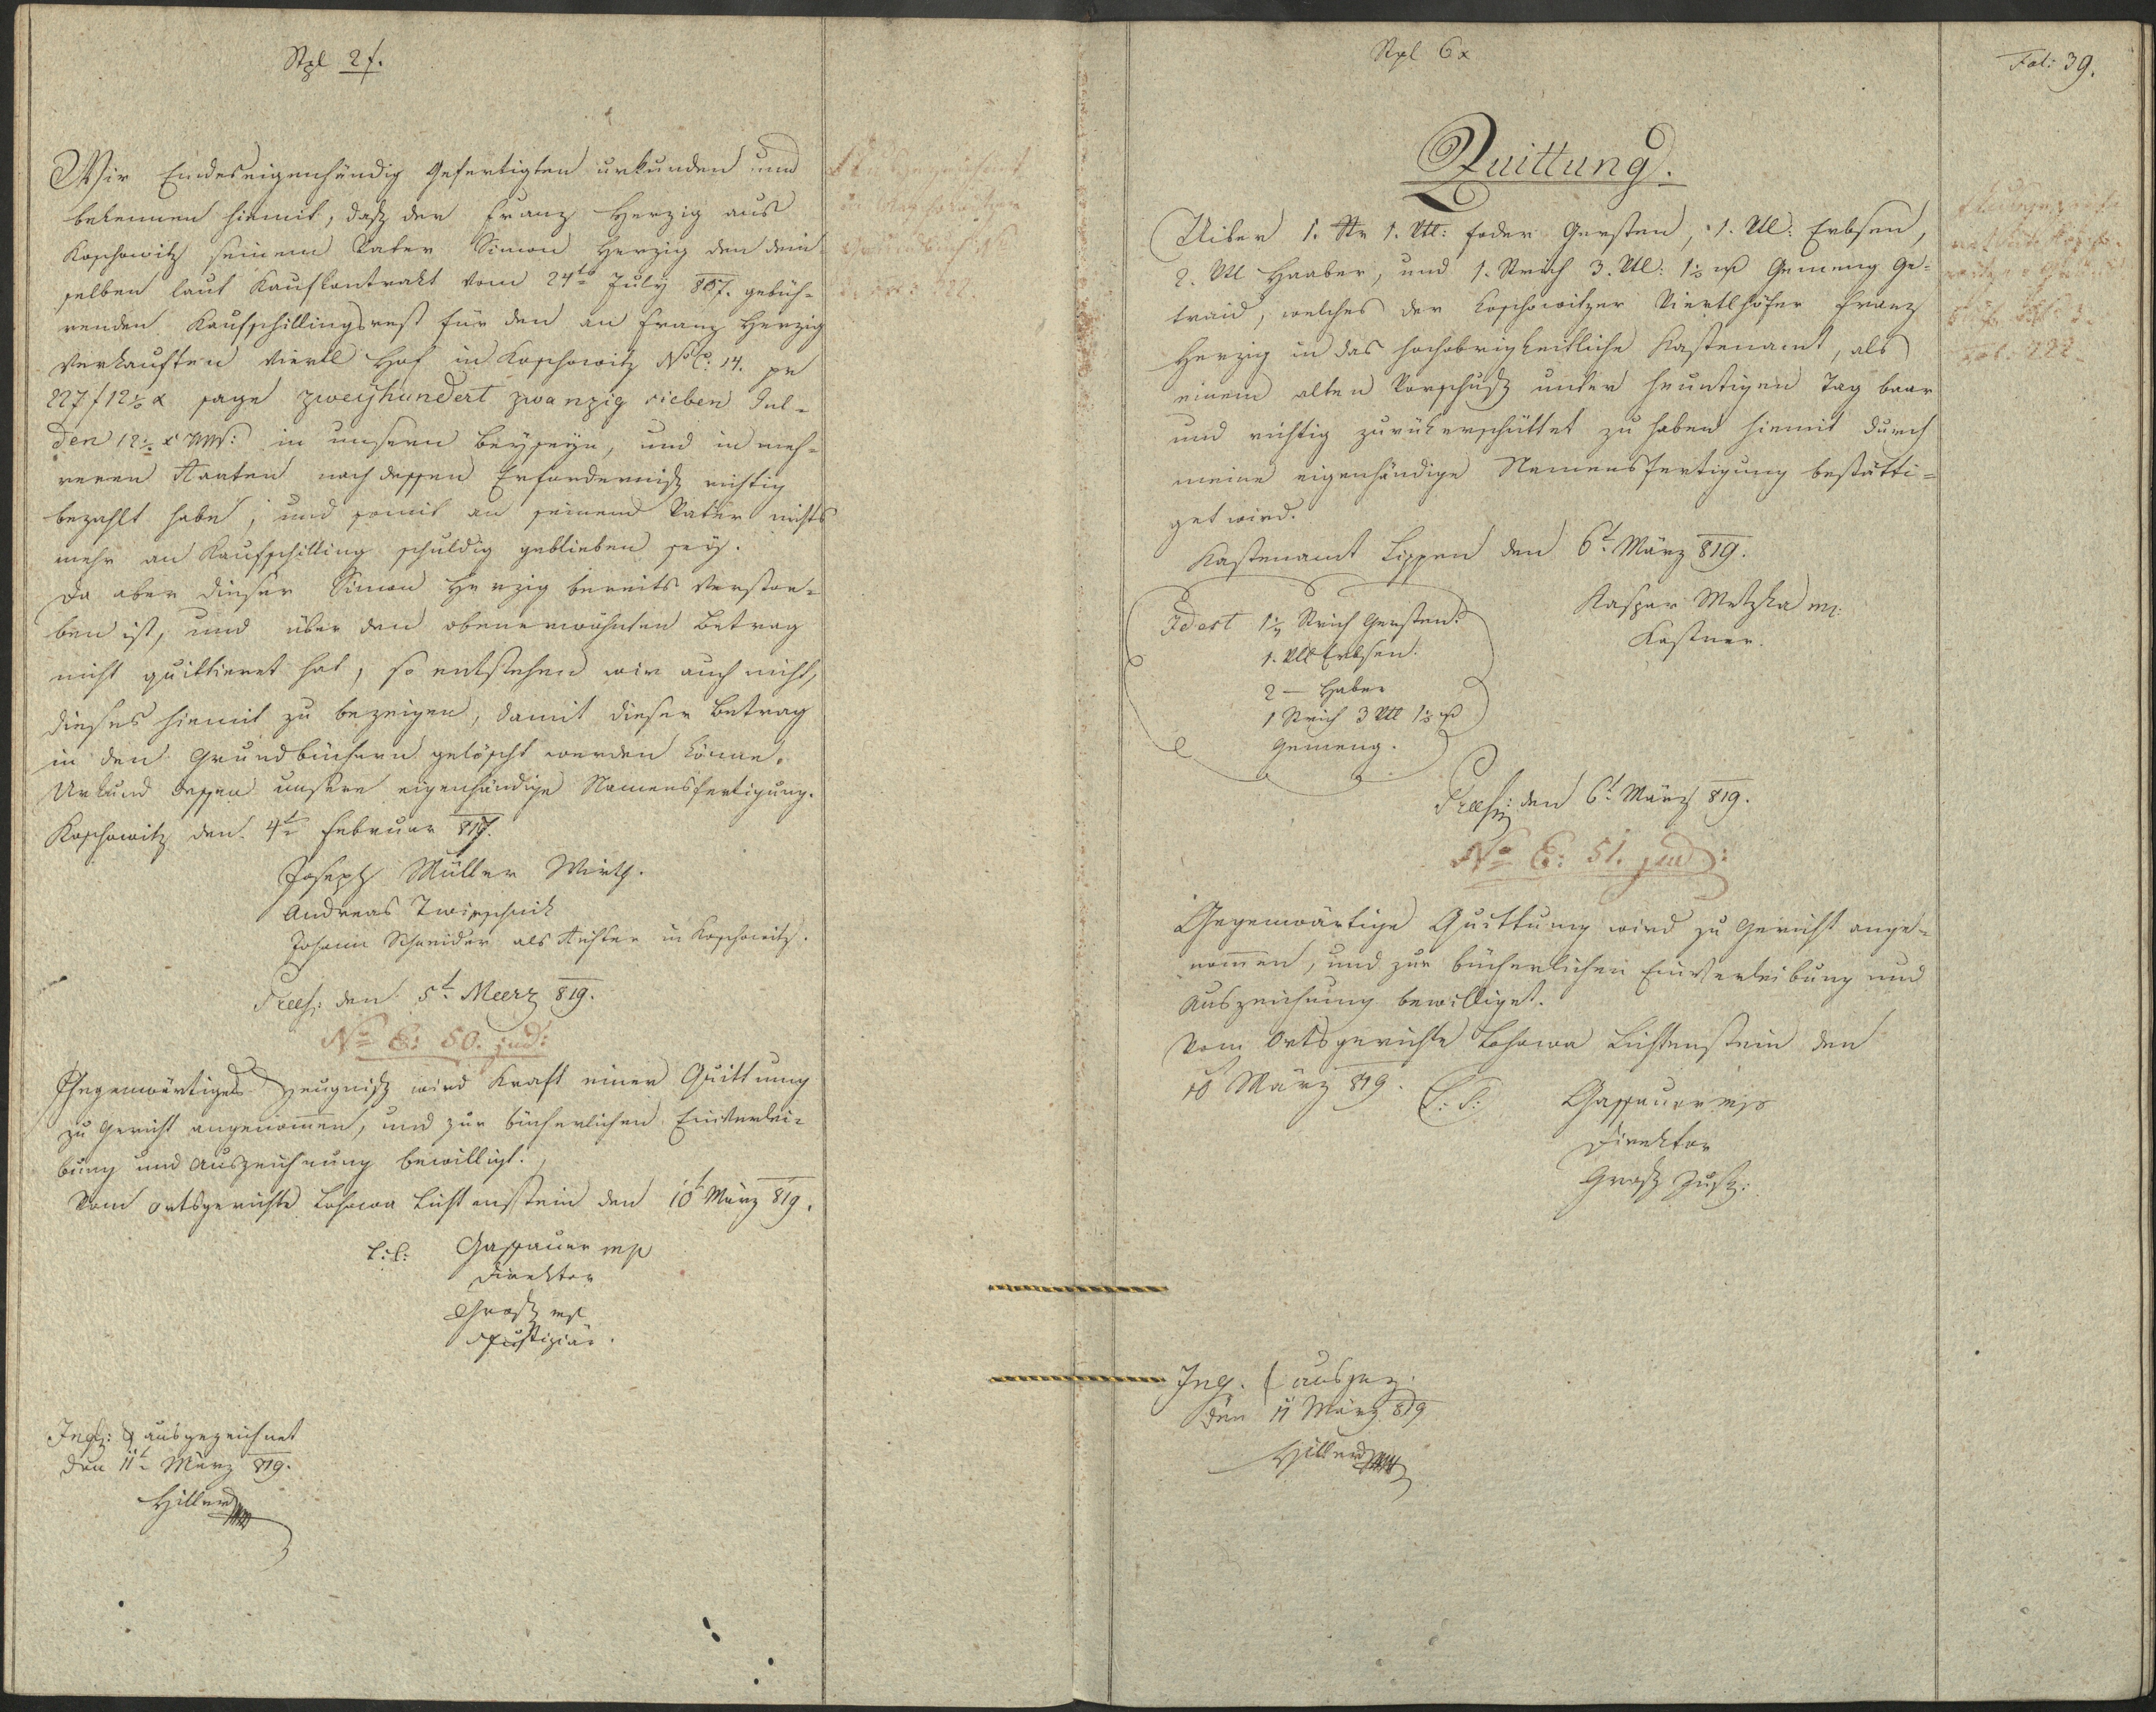 Stpl 2 f.
Wir Endeseigenhändig Gefertigten urkunden und
bekennen hiemit, daß der Franz Herzig aus
Koschowitz seinem Vater Simon Herzig den dem
selben laut Kaufkontrakt vom 24ten July 807. gebüh-
renden Kaufschillingsrest für den an Franz Herzig
verkauften viertl Hof in Koschowitz No C: 14. pr
227 f 12½ x sage zweyhundert zwanzig sieben Gul-
den 12½ x WW: in unsern Beyseyn, und in meh-
reren Raaten nach dessen Erforderniß richtig
bezahlt habe, und somit an seinem Vater nichts
mehr an Kaufschilling schuldig geblieben sey.
Da aber dieser Simon Herzig bereits verstor-
ben ist, und über den obenerwähnten Betrag
nicht quittieret hat, so entstehen wir auch nicht,
dieses hiemit zu bezeigen, damit dieser Betrag
in den Grundbüchern gelöscht werden könne.
Urkund dessen unsere eigenhändige Namensfertigung.
Koschowitz den 4te Februar 819.
Joseph Müller Wirth.
Andreas
Johann Schneider als Richter in Koschowitz.
Praes: den 5t Meerz 819.
No E: 50. jud:
Gegenwärtiges Zeugniß wird Kraft einer Quittung
zu Gericht angenommen, und zur bücherlichen Einverlei-
bung und Auszeichnung bewilligt.
Vom Ortsgerichte Lohowa Lichtenstein den 10t März 819.
L: S: Gassauer mp
Direktor
Groß mp
Justiziär.
Ingß: & ausgezeichnet
den 11t März 819.
Hiller
Stpl 6 x
Fol: 39.
Quittung.
Uiber 1. Str 1. Vtl: foder Gersten, 1. Vtl: Erbsen,
2. Vtl Haaber, und 1. Strich 3. Vtl: 1½ Gemeng Ge-
traid, welches der Koschowitzer Viertlhöfer Franz
Herzig in das hochobrigkeitliche Kastenamt, als
einem alten Vorschuß unter heuntigen Tag baar
und richtig zurükerschüttet zu haben hiemit durch
meine eigenhändige Namensfertigung bestätti-
get wird.
Kastenamt Lippen den 6t März 819.
Kaspar Metzka mp:
Kastner.
Idest 1¼ Strich Gersten
1. Vtl Erbsen.
2 — Haber
1 Strich 3 Vtl 1½
Gemeng.
Praes: den 6t März 819.
No E: 51. jud:
Gegenwärtige Quittung wird zu Gericht ange-
nommen, und zur bücherlichen Einverleibung und
Auszeichnung bewilliget.
Vom Ortsgerichte Lohowa Lichtenstein den
10 März 819. L: S: Gassauer mp
Direktor
Groß Justz:
Ing. & ausgez.
den 11 März 819
Hiller
Fol: 222.